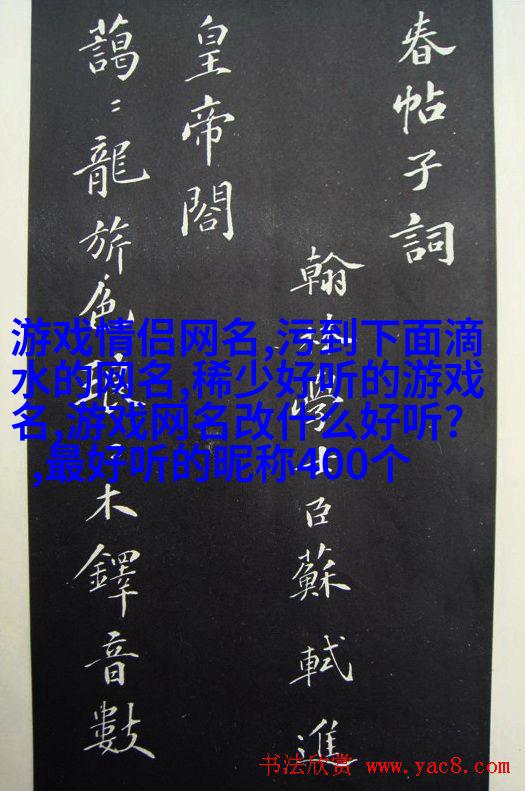 春帖子詞
翰林學士臣蘇軾進
皇帝閣
藹〻龍旂色琅〻木鐸音數
游戏情侣网名,污到下面滴
水的网名,稀少好听的游戏
名,游戏网名改什么好听?
,最好听的昵称400个
书法欣赏 www.yac8.com